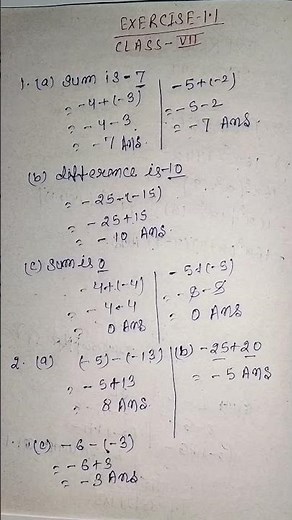 EXERCISE-1.1
CLASS-VII
1. (a) sum is -7
= -4+(-3)
= -4-3
= -7 Ans.
-5+(-2)
= -5-2
= -7 Ans
(b) difference is -10
= -25-(-15)
= -25+15
= -10 Ans.
(c) sum is 0
-4+(-4)
= -4-4
= 0 Ans
-5+(-5)
= -5-5
= 0 Ans
2. (a) (-5)-(-13)
= -5+13
= 8 Ans.
(b) -25+20
= -5 Ans
(c) -6-(-3)
= -6+3
= -3 Ans.